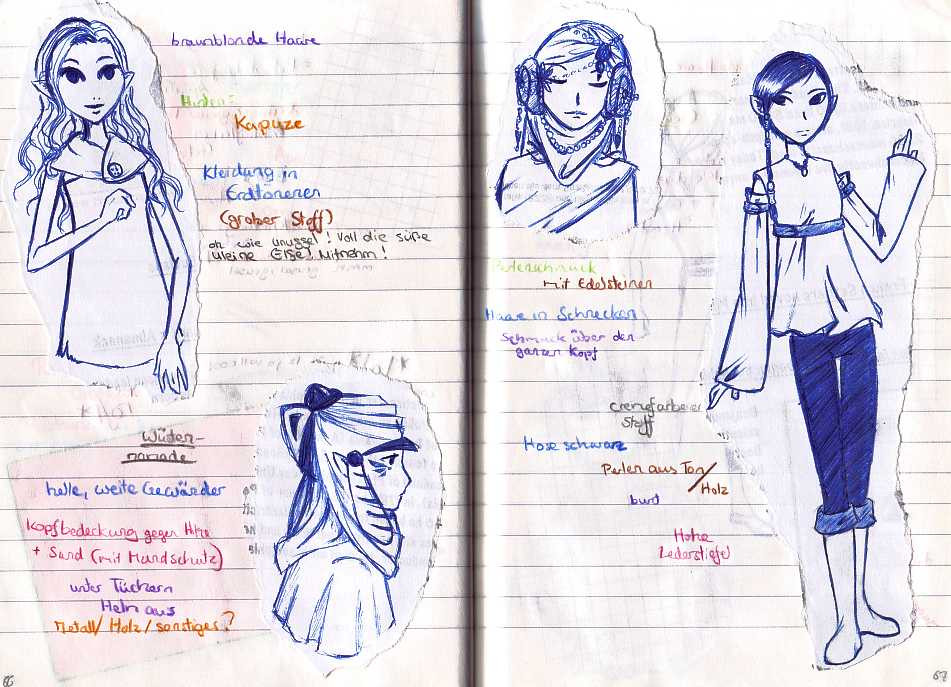 braunblonde Haare
Hinten:
Kapuze
Kleidung in
Erdtönenen
(grober Stoff)
oh wie knussel! Voll die süße
kleine Elbe! Mitnehm!
Wüsten-
nomade
helle, weite Gewänder
Kopfbedeckung gegen Hitze
+ Sand (mit Mundschutz)
unter Tüchern
Helm aus
Metall/Holz/sonstiges?
86
Perlenschmuck
mit Edelsteinen
Haare in Schnecken
Schmuck über den
ganzen Kopf
cremefarbener
Stoff
Hose schwarz
Perlen aus Ton/
Holz
bunt
Hohe
Lederstiefel
87